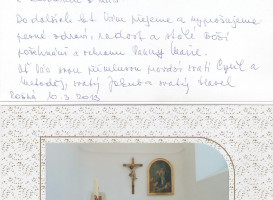 Do dalších let Vám přejeme a vyprošujeme
pevné zdraví, radost a stálé Boží
požehnání a ochranu Panny Marie.
Ať Vás svou přímluvou provází svatí Cyril a
Metoděj, svatý Jakub a svatý Havel
10.3.2013